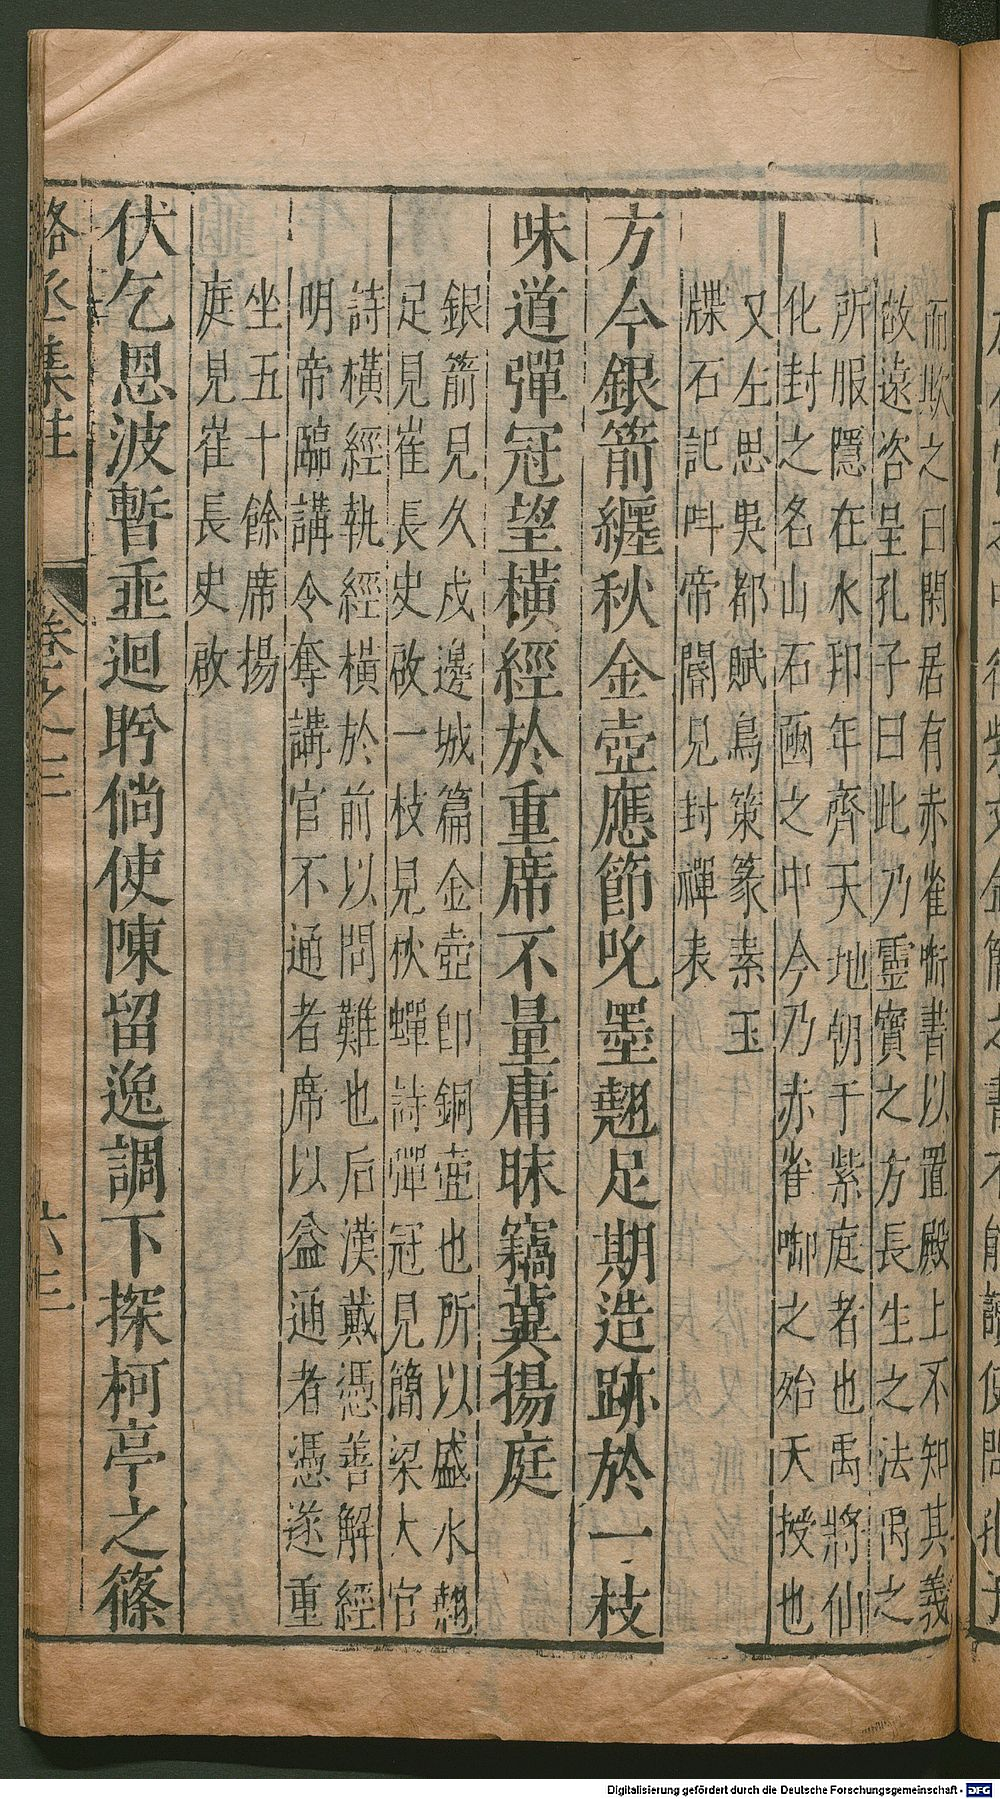 而歟之曰閑居有赤雀衘書以置殿上不知其義
故遠咨呈孔子曰此乃靈寶之方長生之法禹之
所服隱在水邦年齊天地朝于紫庭者也禹將仙
化封之名山石凾之中今乃赤雀啣之殆天授也
又左思吳都賦鳥策篆素玉
牒石記呌帝閽見封禪表
方今銀箭纏秋金壺應節吮墨翹足期造跡於一枝
味道彈冠望橫經於重席不量庸昧竊冀揚庭
銀箭見久戍邊城篇金壺卽銅壺也所以盛水翹
足見崔長史啟一枝見秋蟬詩彈冠見簡梁大官
詩橫經執經橫於前以問難也后漢戴憑善解經
明帝臨講令奪講官不通者席以益通者憑遂重
坐五十餘席揚
庭見崔長史啟
伏乞恩波暫垂迴盻倘使陳留逸調下探柯亭之篠
駱丞集註 卷之三 六三
Digitalisierung gefördert durch die Deutsche Forschungsgemeinschaft - DFG